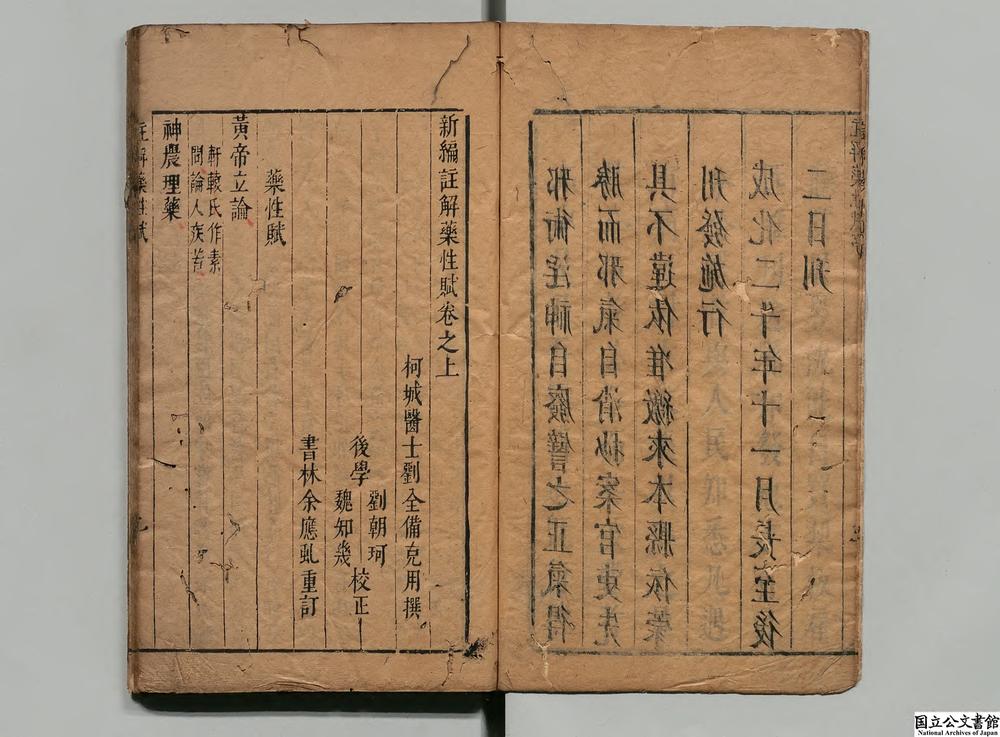 邪術淫神自廢譬之正氣得
勝而邪氣自消抄案官吏先
具不違依准繳來本縣依葉
刊發施行
成化二十年十一月長至後
二日刊
新編註解藥性賦卷之上
柯城醫士劉全備克用撰
後學
劉朝珂
魏知幾
校正
書林余應虬重訂
藥性賦
黃帝立論
軒轅氏作素
問論人疾苦
神農理藥
註解藥性賦
国立公文書館
National Archives of Japan